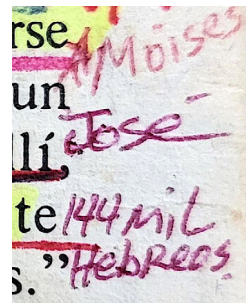 rse A Moises
un
José
lí,
te 144 mil
s.” Hebreos